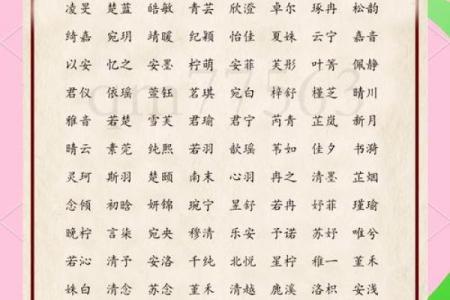 凌旻 楚蓝 皓敏 青芸 欣澄 卓尔 琢冉 松韵
绮嘉 宛玥 靖暖 纪颖 怡佳 夏姝 云宁 嘉音
以安 忆之 安墨 柠萌 安菲 芙彤 叶菁 佩静
君仪 依瑶 萱钰 茗琪 宛白 梓舒 槿芝 晴川
雅音 若楚 雪芙 君瑜 君宁 芮青 芷岚 新月
晴云 素莞 纯熙 若羽 歆瑶 苇如 佳夕 书漪
灵珂 斯羽 楚颐 南末 心羽 冉之 清墨 芷烟
念倾 初晗 妍锦 琬宁 星舒 若冉 妤菲 瑾瑜
晚柠 言柒 宛央 穆清 乐安 予诺 苏妤 唯兮
若沁 清予 安洛 千纯 北悦 星柠 稚一 堇禾
姝白 清念 苏念 堇禾 清越 鹿溪 洛枳 安浅